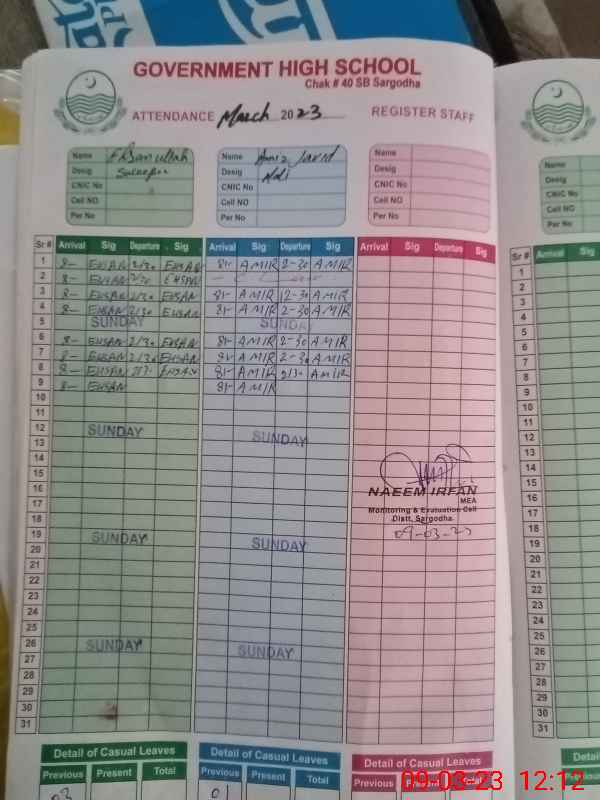 GOVERNMENT HIGH SCHOOL
Chak # 40 SB Sargodha
ATTENDANCE March 2023 REGISTER STAFF
Name Ehsanullah Name Amir Javed Name
Desig Desig Desig
CNIC No CNIC No CNIC No
Cell NO Cell NO Cell NO
Per No Per No Per No
Sr # Arrival Sig Departure Sig Arrival Sig Departure Sig Arrival Sig Departure Sig Sr # Arrival Sig
1 8- EHSAN 2/30 EHSAN 8/- AMIR 2-30 AMIR 1
2 8- EHSAN 2/30 EHSAN 2
3 8- EHSAN 2/30 EHSAN 8/- AMIR 12-30 AMIR 3
4 8- EHSAN 2/30 EHSAN 8/- AMIR 2-30 AMIR 4
5 SUNDAY SUNDAY 5
6 8- EHSAN 2/30 EHSAN 8/- AMIR 2-30 AMIR 6
7 8- EHSAN 2/30 EHSAN 8/- AMIR 2-30 AMIR 7
8 8- EHSAN EHSAN 8/- AMIR 2/30 AMIR 8
9 8- EHSAN 8/- AMIR 9
10 10
11 11
12 SUNDAY SUNDAY 12
13 13
14 14
15 15
16 NAEEM IRFAN 16
MEA
17 Monitoring & Evaluation Cell 17
Distt. Sargodha.
18 09-03-23 18
19 SUNDAY SUNDAY 19
20 20
21 21
22 22
23 23
24 24
25 25
26 SUNDAY SUNDAY 26
27 27
28 28
29 29
30 30
31 31
Detail of Casual Leaves Detail of Casual Leaves Detail of Casual Leaves
Previous Present Total Previous Present Total Previous Present Total
03 01
09-03-23 12:12